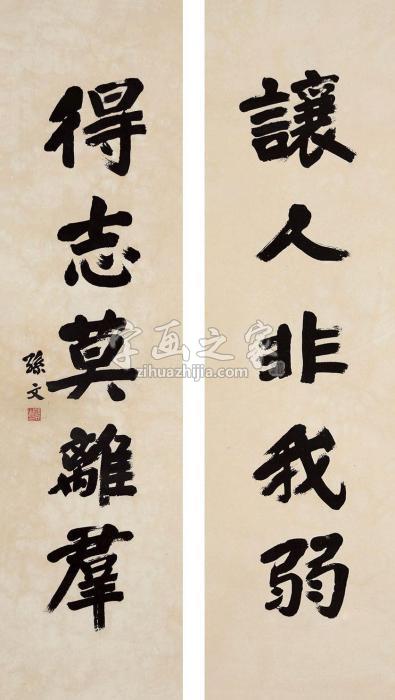 讓人非我弱
得志莫離羣
孫文
字画之家
zihuazhijia.com